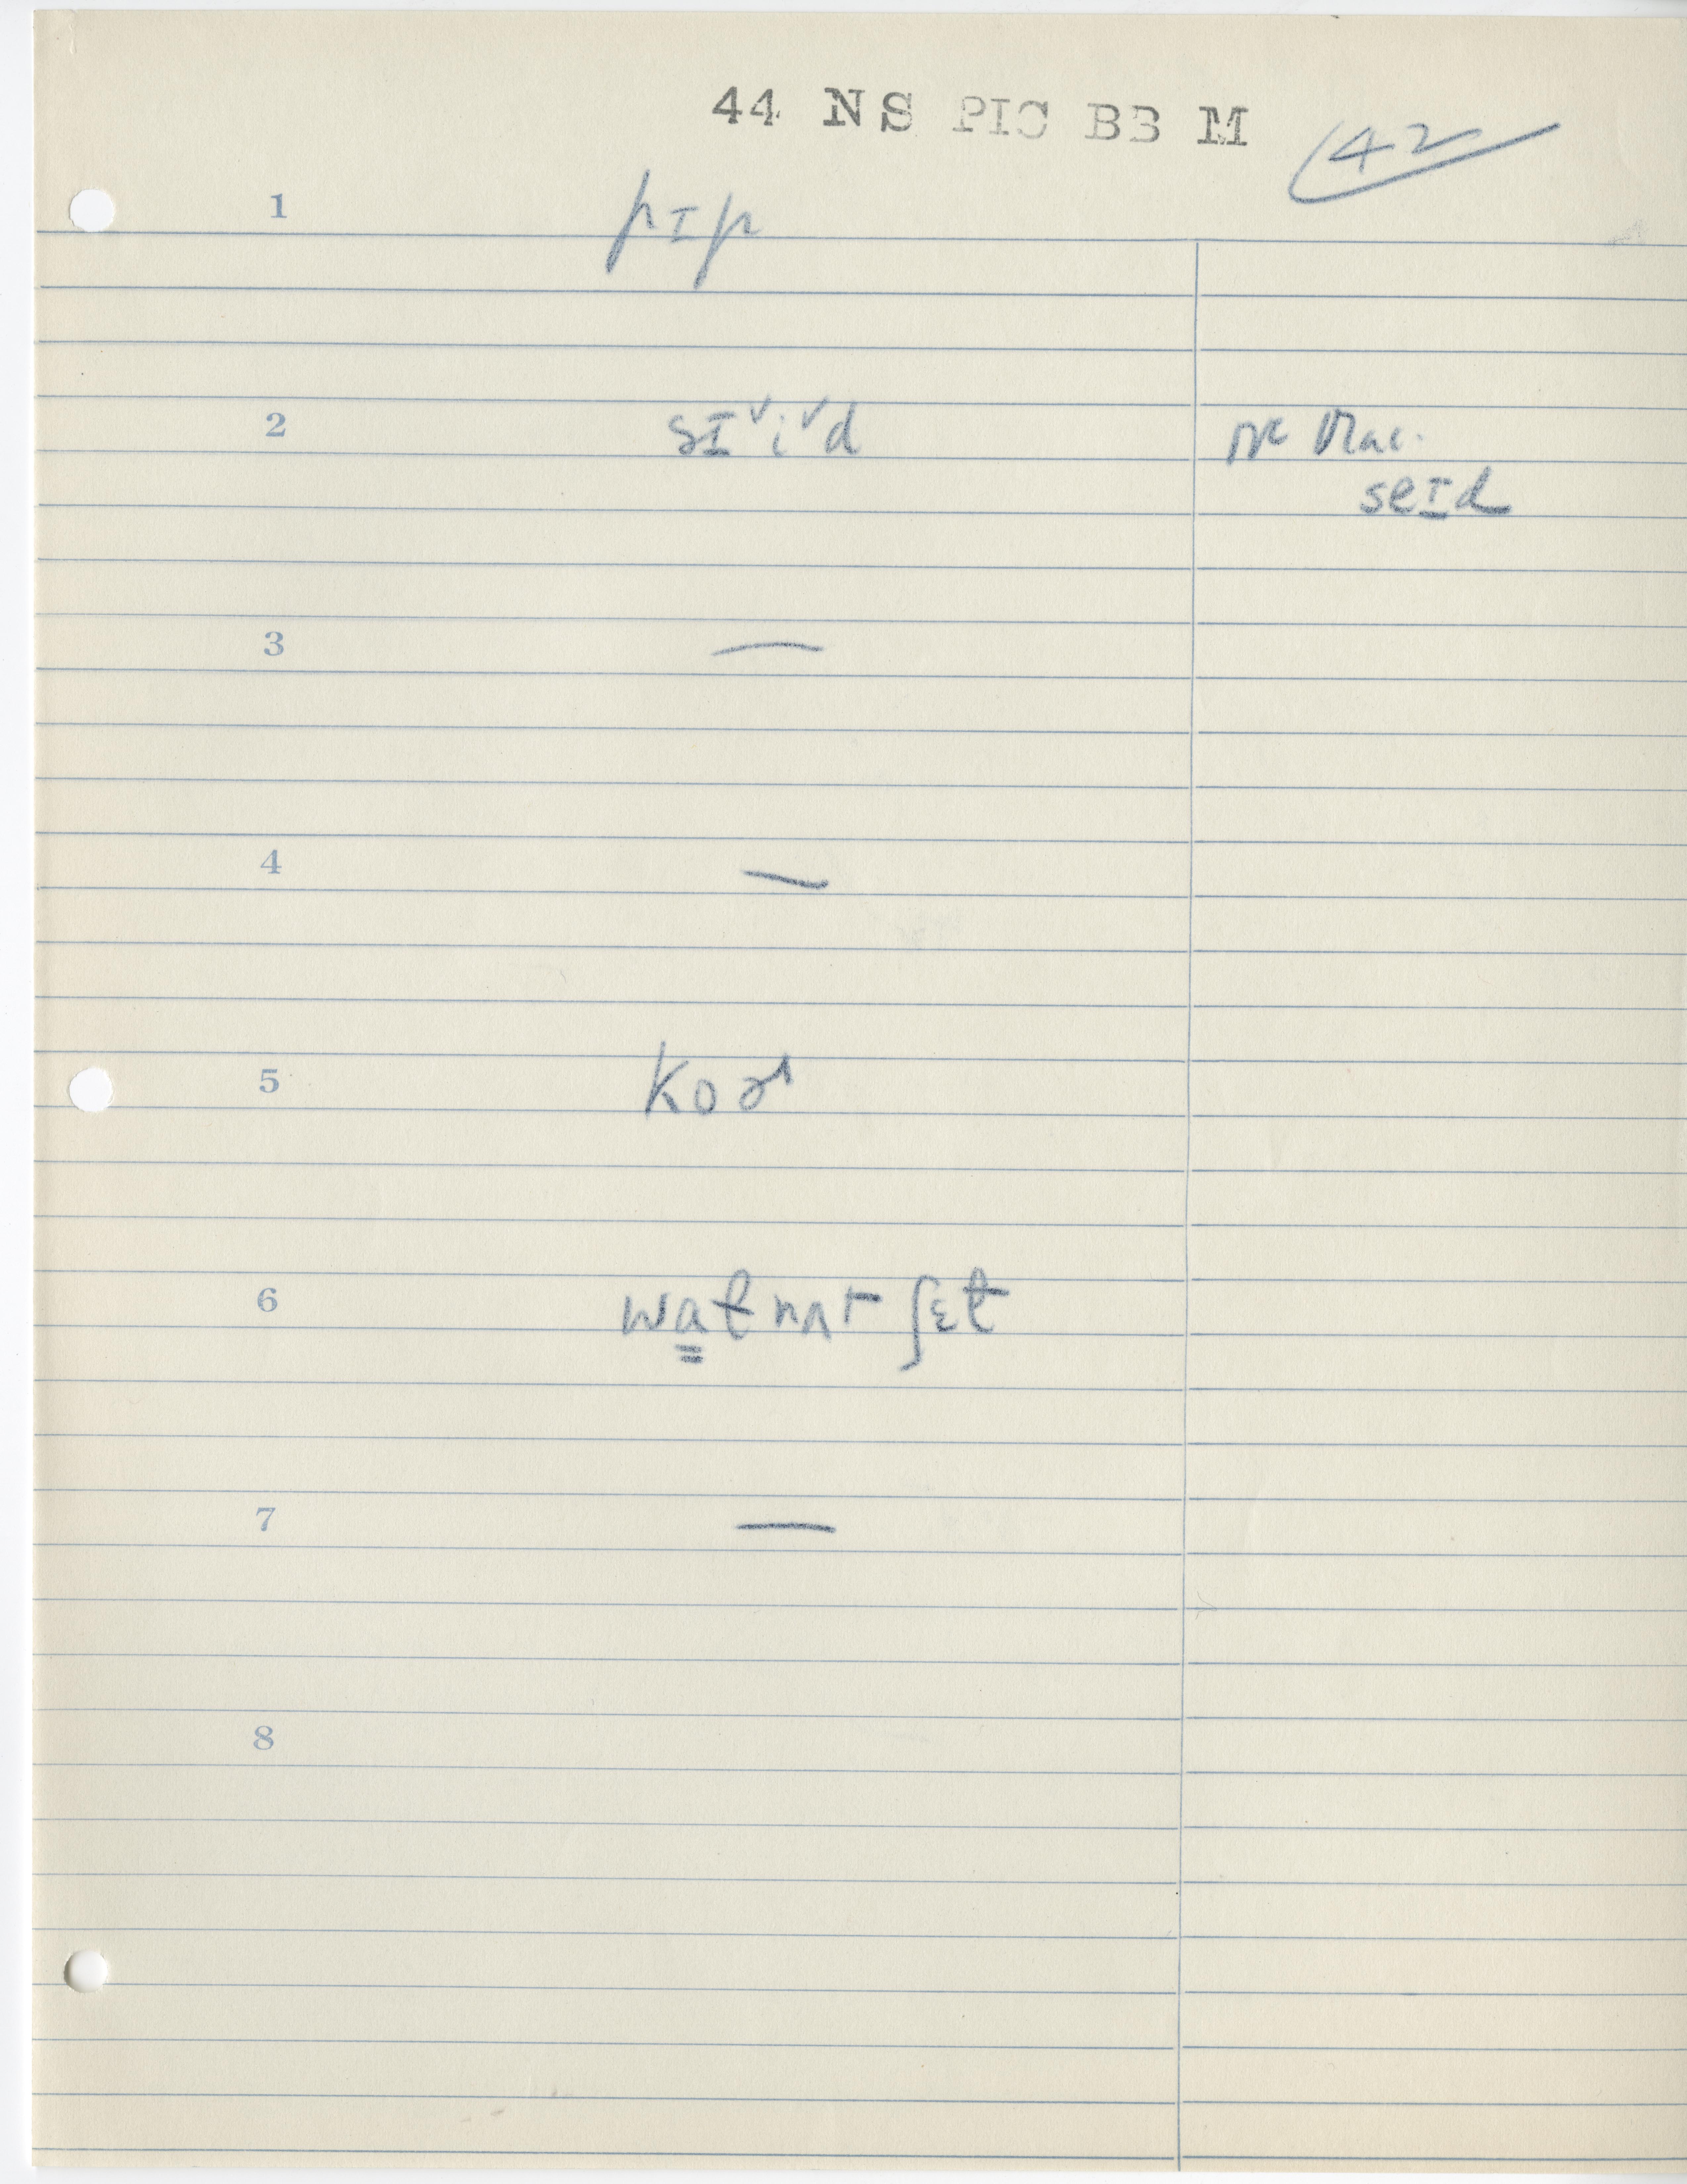 44 NS PIC BB M 42
1 pɪp
2 sɪˇiˇd
seɪd
3 —
4 —
5 Koɚ
6 wat nʌt ʃɛt
7 —
8